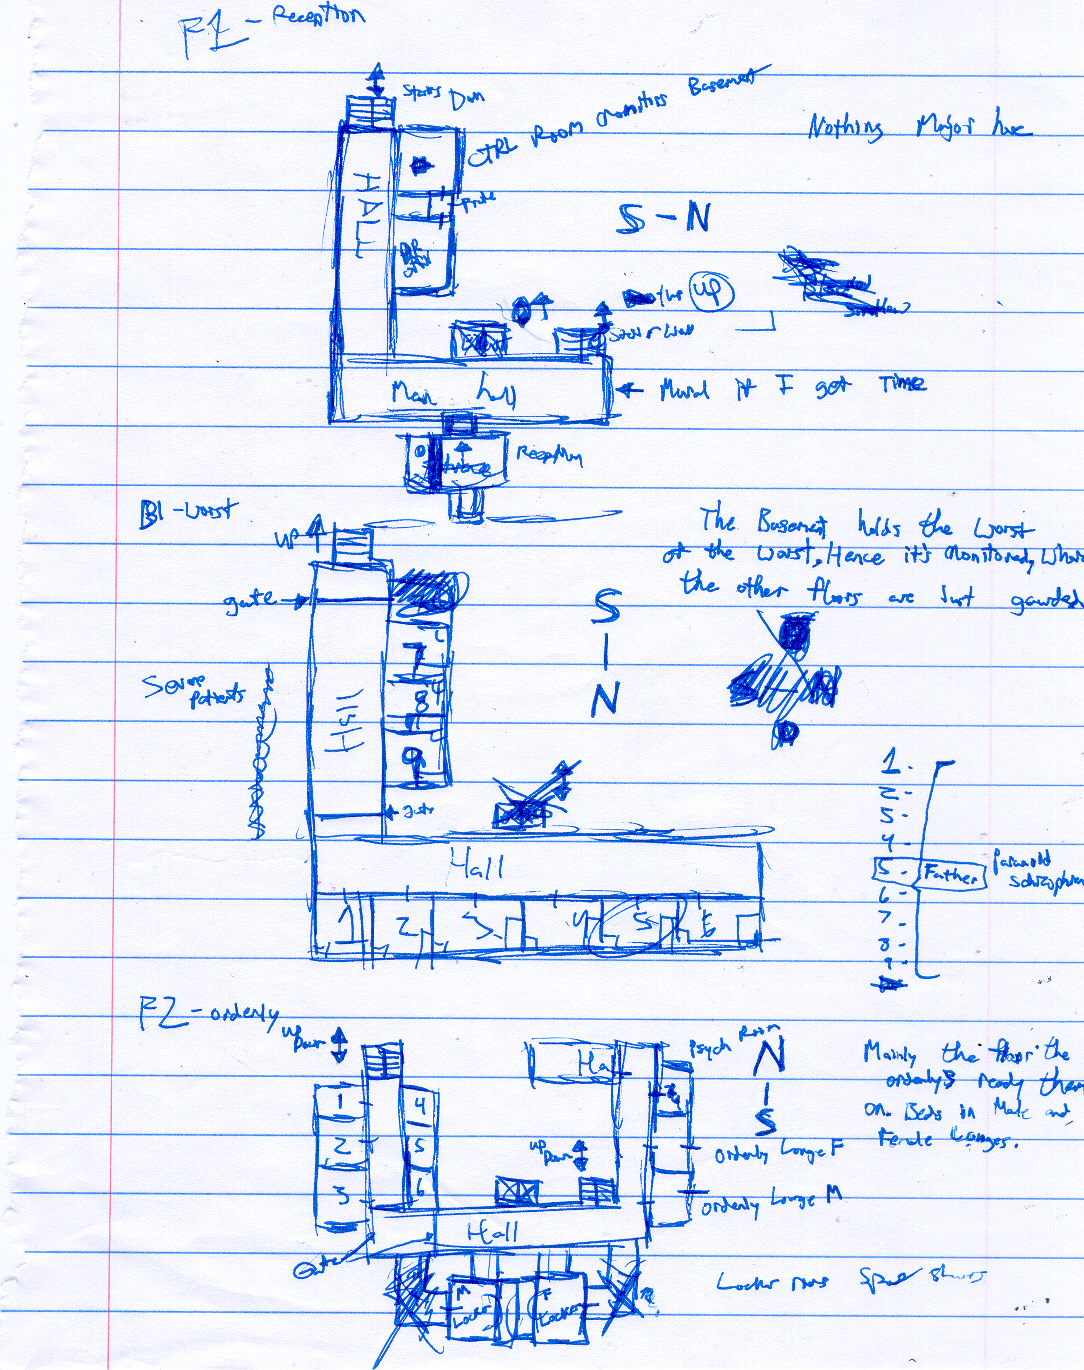 F1 - Reception
Stairs Down
CTRL Room Monitors Basement
Nothing Major here
HALL
S - N
UP
Main hall
Mural if I get Time
Reception
Entrance
B1 - Worst
UP
The Basement holds the Worst
of the Worst, Hence it's Monitored, Where
the other floors are Just gaurded
gate
S
N
7
8
9
Severe
Patients
Hall
gate
Hall
1
2
3
4
5
6
1 -
2 -
3 -
4 -
5 - Father
Paranoid
6 -
7 -
8 -
9 -
F2 - orderly
UP
Down
Psych Room
Ha
N
S
Mainly the floor the
orderlys ready them
on. Beds in Male and
Female Lounges.
1
4
2
5
3
6
UP
Down
Orderly Longe F
Orderly Longe M
Hall
Gate
M
Locker
F
Locker
Locker rooms